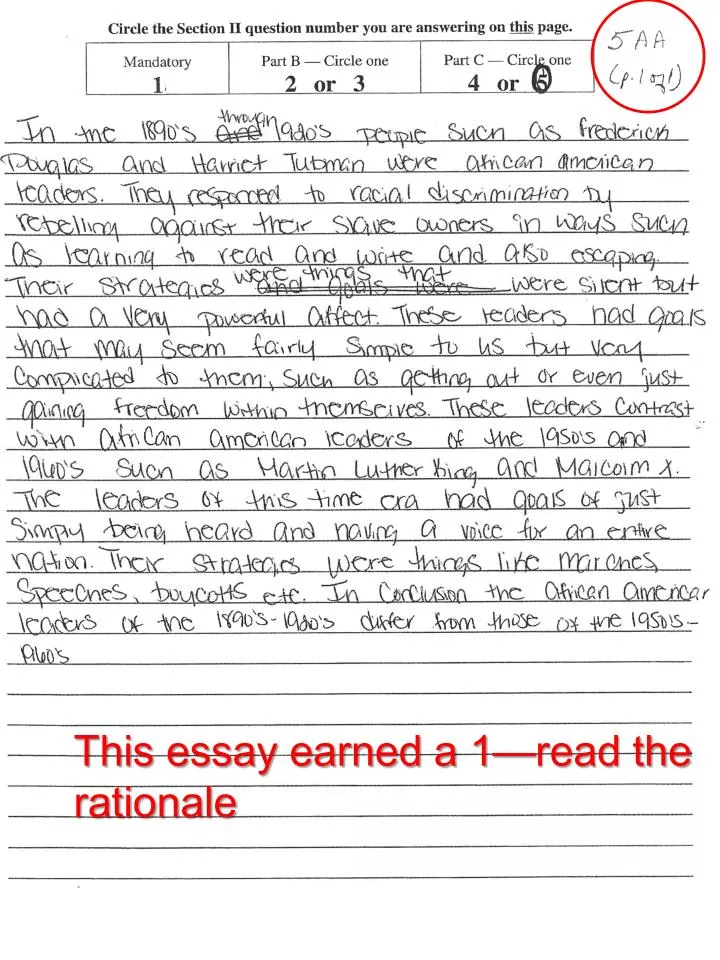 Circle the Section II question number you are answering on this page.
5AA
(p. 1 of 1)
Mandatory
Part B — Circle one
Part C — Circle one
1.
2 or 3
4 or 5
In the 1890's through 1920's people such as frederick
Douglas and Harriet Tubman were african american
leaders. They responded to racial discrimination by
rebelling against their slave owners in ways such
as learning to read and write and also escaping.
Their strategies were things that were silent but
had a very powerful affect. These leaders had goals
that may seem fairly simple to us but very
complicated to them; such as getting out or even just
gaining freedom within themselves. These leaders contrast
with african american leaders of the 1950's and
1960's such as Martin Luther King and Malcolm X.
The leaders of this time era had goals of just
simply being heard and having a voice for an entire
nation. Their strategies were things like marches,
speeches, boycotts etc. In conclusion the african american
leaders of the 1890's-1920's differ from those of the 1950's-
1960's
This essay earned a 1—read the
rationale